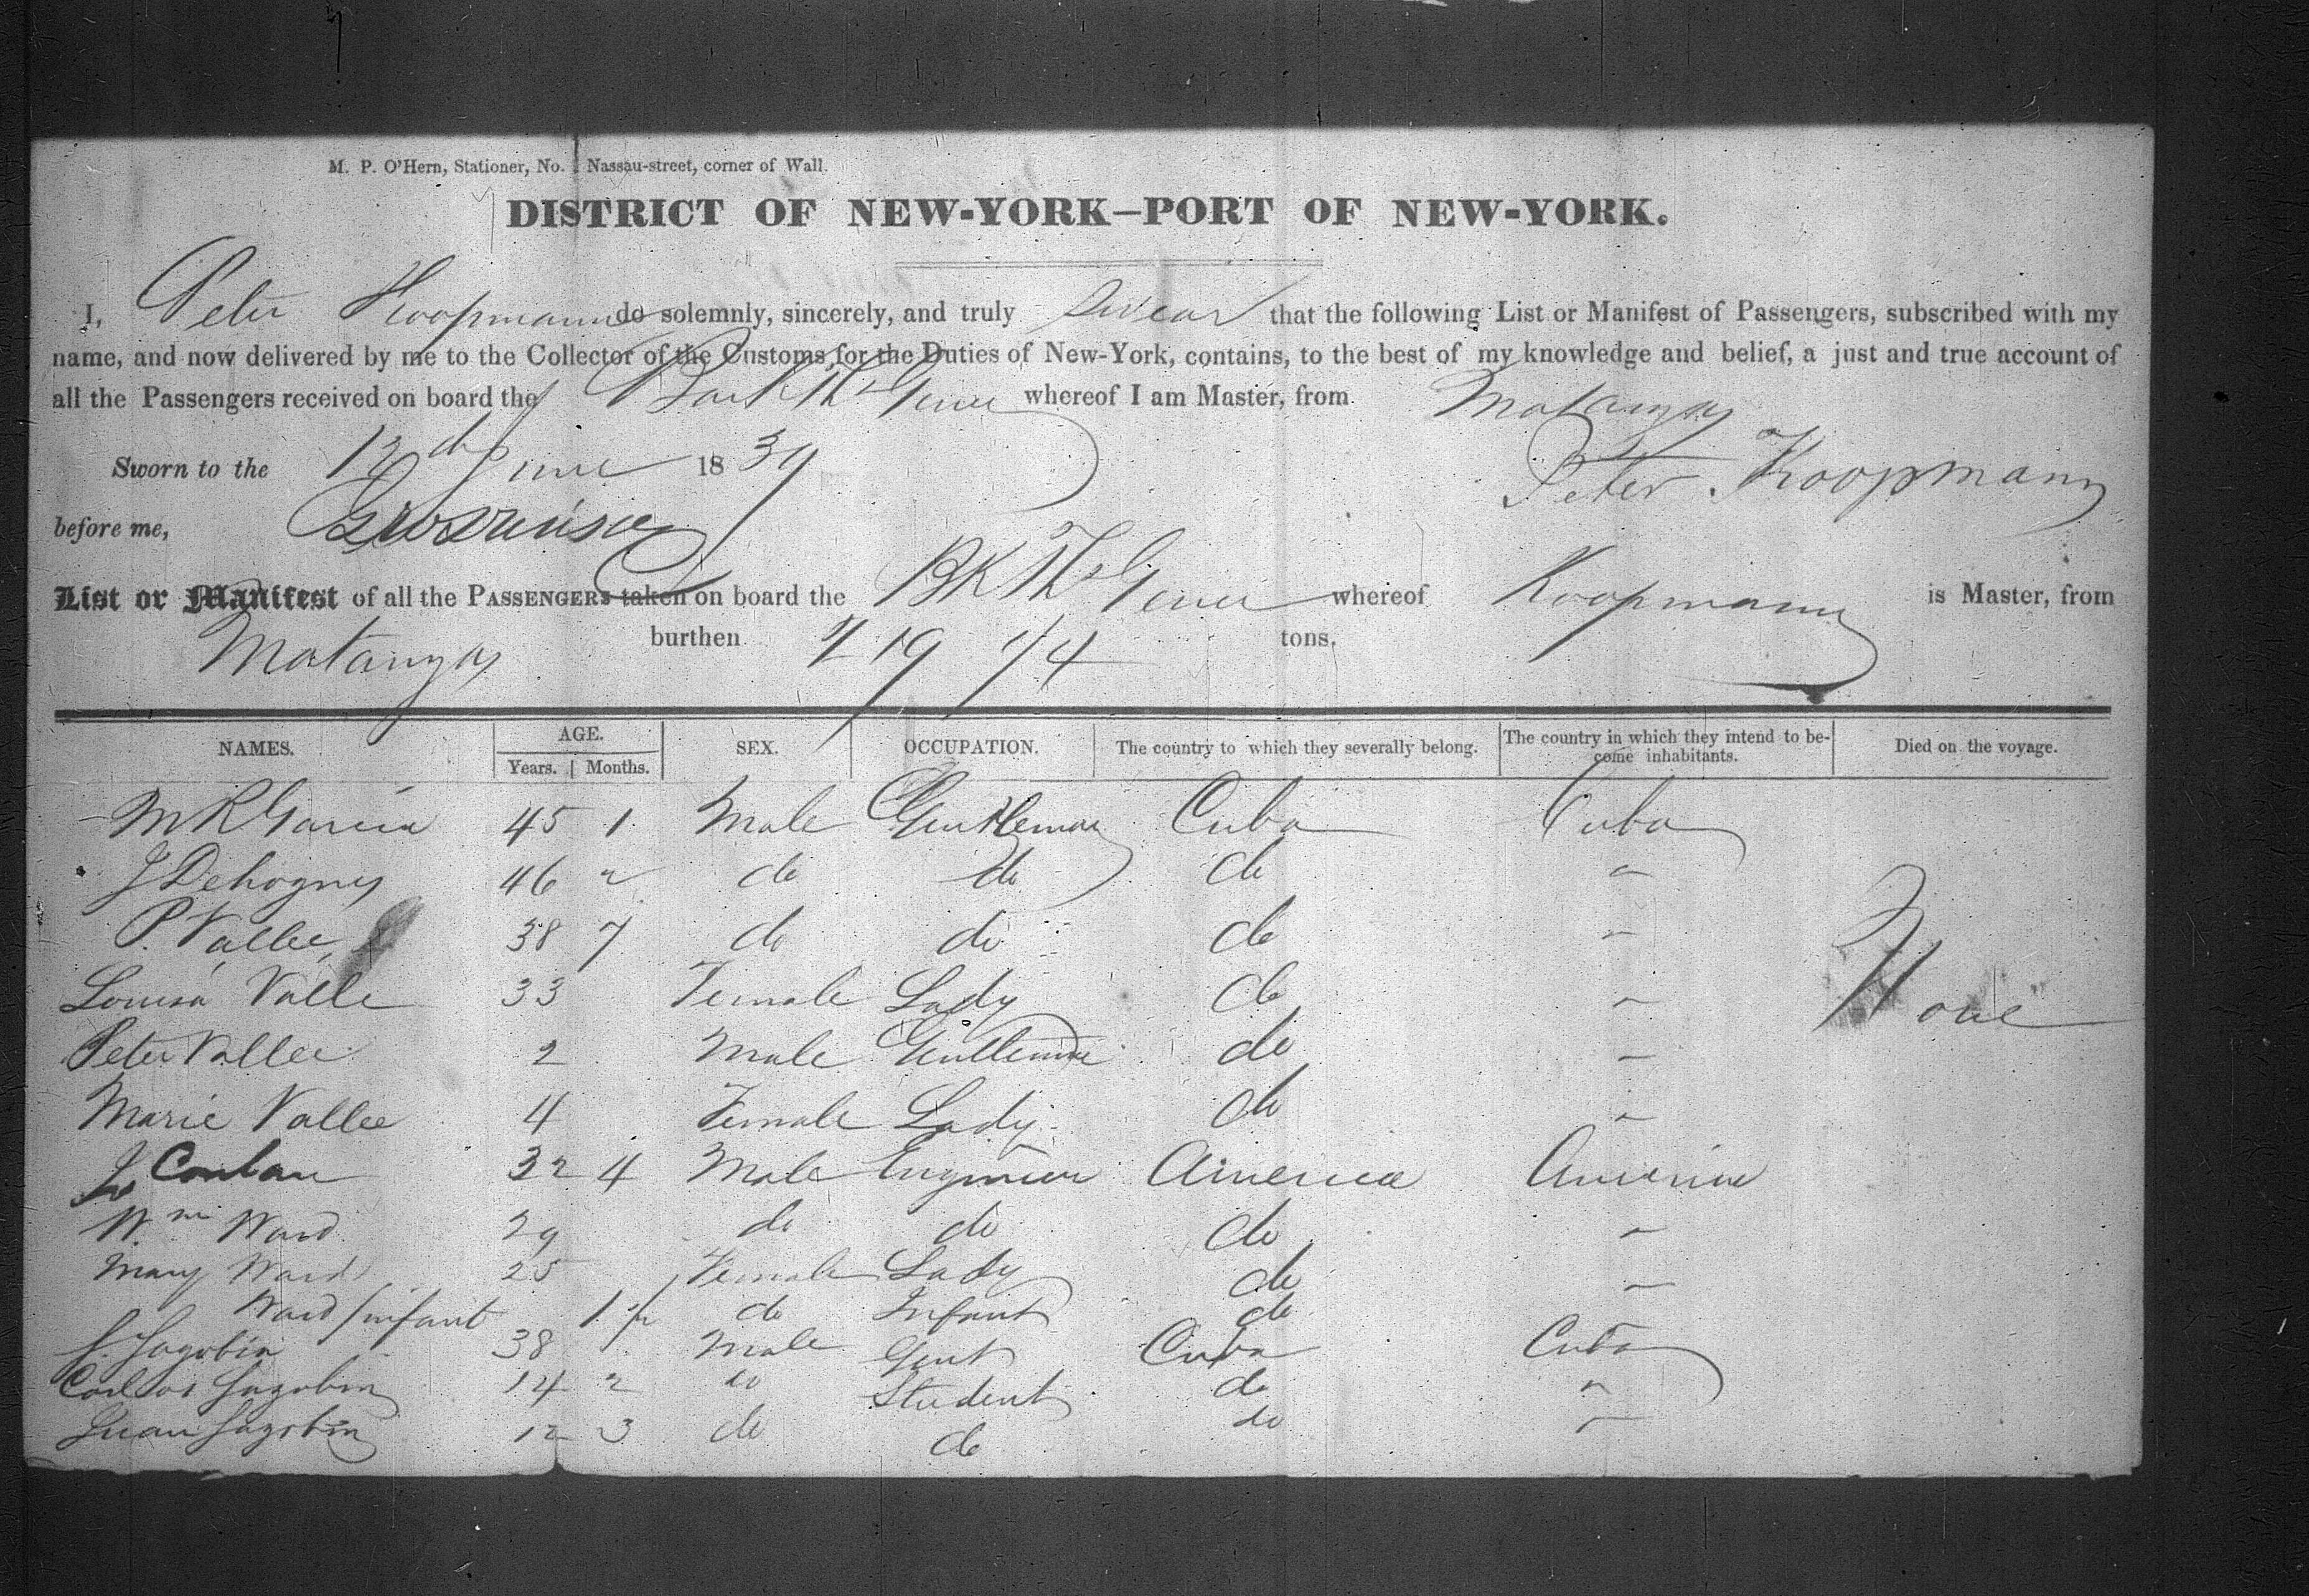 M. P. O'Hern, Stationer, No. 1 Nassau-street, corner of Wall.
DISTRICT OF NEW-YORK—PORT OF NEW-YORK.
I, Peter Koopmann do solemnly, sincerely, and truly swear that the following List or Manifest of Passengers, subscribed with my
name, and now delivered by me to the Collector of the Customs for the Duties of New-York, contains, to the best of my knowledge and belief, a just and true account of
all the Passengers received on board the Bark whereof I am Master, from Matanzas
Sworn to the 12th June 1839 Peter Koopmann
before me,
List or Manifest of all the PASSENGERS taken on board the Bk whereof Koopmann is Master, from
Matanzas burthen tons.
NAMES. AGE. SEX. OCCUPATION. The country to which they severally belong. The country in which they intend to be- Died on the voyage.
Years. Months. come inhabitants.
M R Garcia 45 1 Male Gentleman Cuba Cuba
46 2 do do do "
P. Vallee 38 7 do do do "
Louisa Valle 33 Female Lady do " None
Peter Vallee 2 Male Gentleman do "
Marie Vallee 4 Female Lady do "
Conlan 32 4 Male Engineer America America
Wm Ward 29 do do do "
Mary Ward 25 Female Lady do "
Ward infant 1 1/2 do Infant do
38 Male Gent Cuba Cuba
Carlos 14 2 do Student do "
Juan 12 3 do do do "